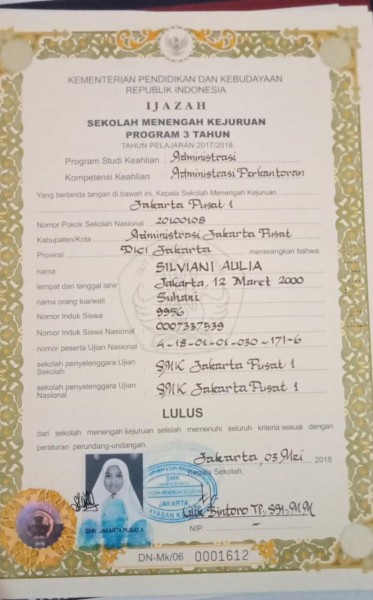 KEMENTERIAN PENDIDIKAN DAN KEBUDAYAAN
REPUBLIK INDONESIA
IJAZAH
SEKOLAH MENENGAH KEJURUAN
PROGRAM 3 TAHUN
TAHUN PELAJARAN 2017/2018
Program Studi Keahlian : Administrasi
Kompetensi Keahlian : Administrasi Perkantoran
Yang bertanda tangan di bawah ini, Kepala Sekolah Menengah Kejuruan
Jakarta Pusat 1
Nomor Pokok Sekolah Nasional : 20100108
Kabupaten/Kota : Administrasi Jakarta Pusat
Provinsi : DKI Jakarta menerangkan bahwa:
nama : SILVIANI AULIA
tempat dan tanggal lahir : Jakarta, 12 Maret 2000
nama orang tua/wali : Suhani
Nomor Induk Siswa : 9956
Nomor Induk Siswa Nasional : 0007337539
nomor peserta Ujian Nasional : 4-18-01-01-030-171-6
sekolah penyelenggara Ujian Sekolah : SMK Jakarta Pusat 1
sekolah penyelenggara Ujian Nasional : SMK Jakarta Pusat 1
LULUS
dari sekolah menengah kejuruan setelah memenuhi seluruh kriteria sesuai dengan
peraturan perundang-undangan.
Jakarta, 03 Mei 2018
Kepala Sekolah,
SMK
JAKARTA
SMK JAKARTA PUSAT 1
Bintoro TP, SH, MM
NIP.
DN-Mk/06 0001612